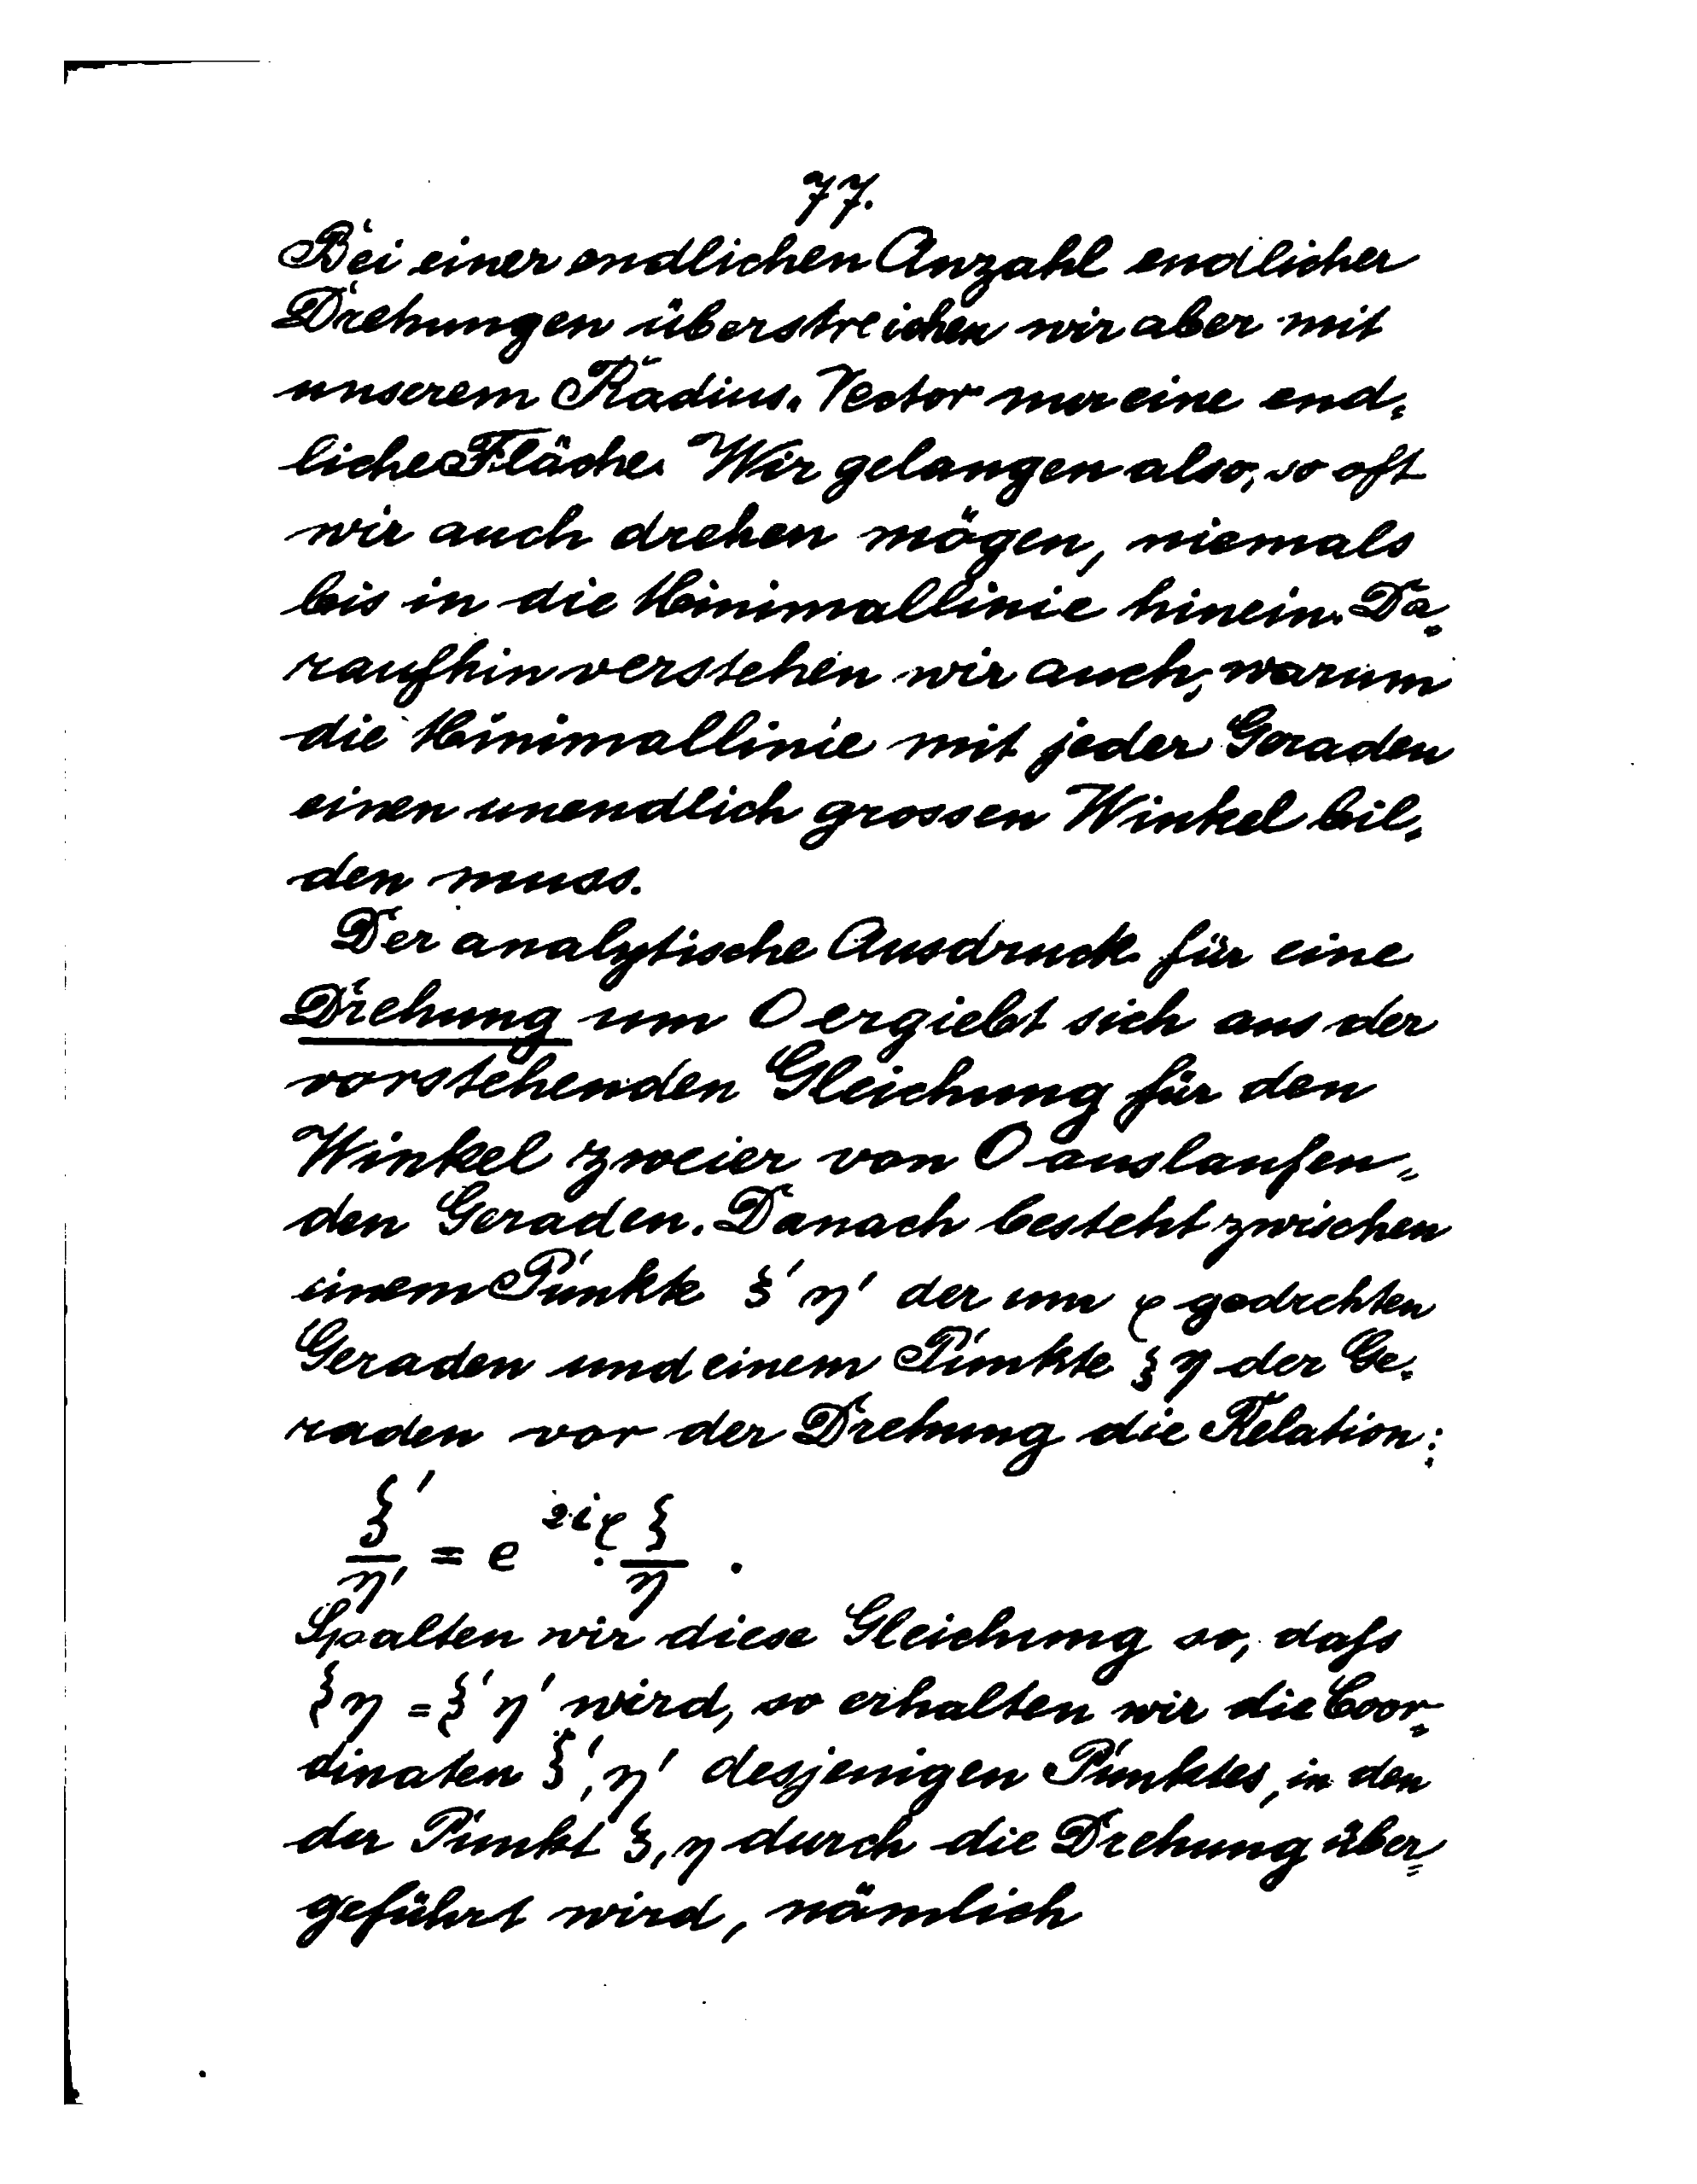 77.
Bei einer endlichen Anzahl endlicher
Drehungen überstreichen wir aber mit
unserem Radius-Vector nur eine end-
liche Fläche. Wir gelangen also, so oft
wir auch drehen mögen, niemals
bis in die Minimallinie hinein. Da-
raufhin verstehen wir auch, warum
die Minimallinie mit jeder Geraden
einen unendlich grossen Winkel bil-
den muss.
Der analytische Ausdruck für eine
Drehung um O ergiebt sich aus der
vorstehenden Gleichung für den
Winkel zweier von O auslaufen-
den Geraden. Danach besteht zwischen
einem Punkte ξ' η' der um φ gedrehten
Geraden und einem Punkte ξ η der Ge-
raden vor der Drehung die Relation:
ξ'/η' = e^{2iφ} · ξ/η .
Spalten wir diese Gleichung so, dafs
ξη = ξ'η' wird, so erhalten wir die Coor-
dinaten ξ', η' desjenigen Punktes, in den
der Punkt ξ, η durch die Drehung über-
geführt wird, nämlich